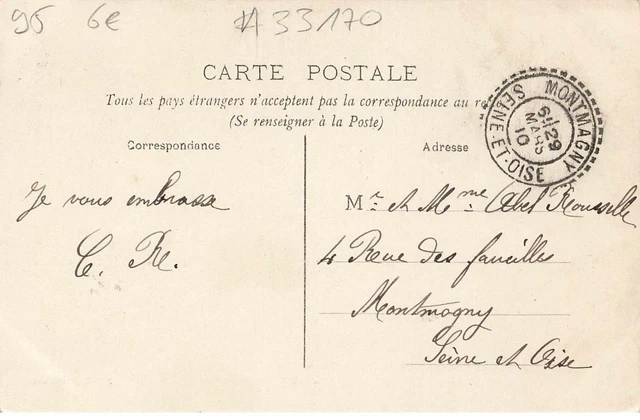 95 6€ #33170
CARTE POSTALE
Tous les pays étrangers n'acceptent pas la correspondance au re
(Se renseigner à la Poste)
MONTMAGNY
SEINE-ET-OISE
29
MARS
10
Correspondance
Adresse
Je vous embrasse
C. R.
Mr et Mme Abel Rousselle
4 Rue des faucilles
Montmagny
Seine et Oise